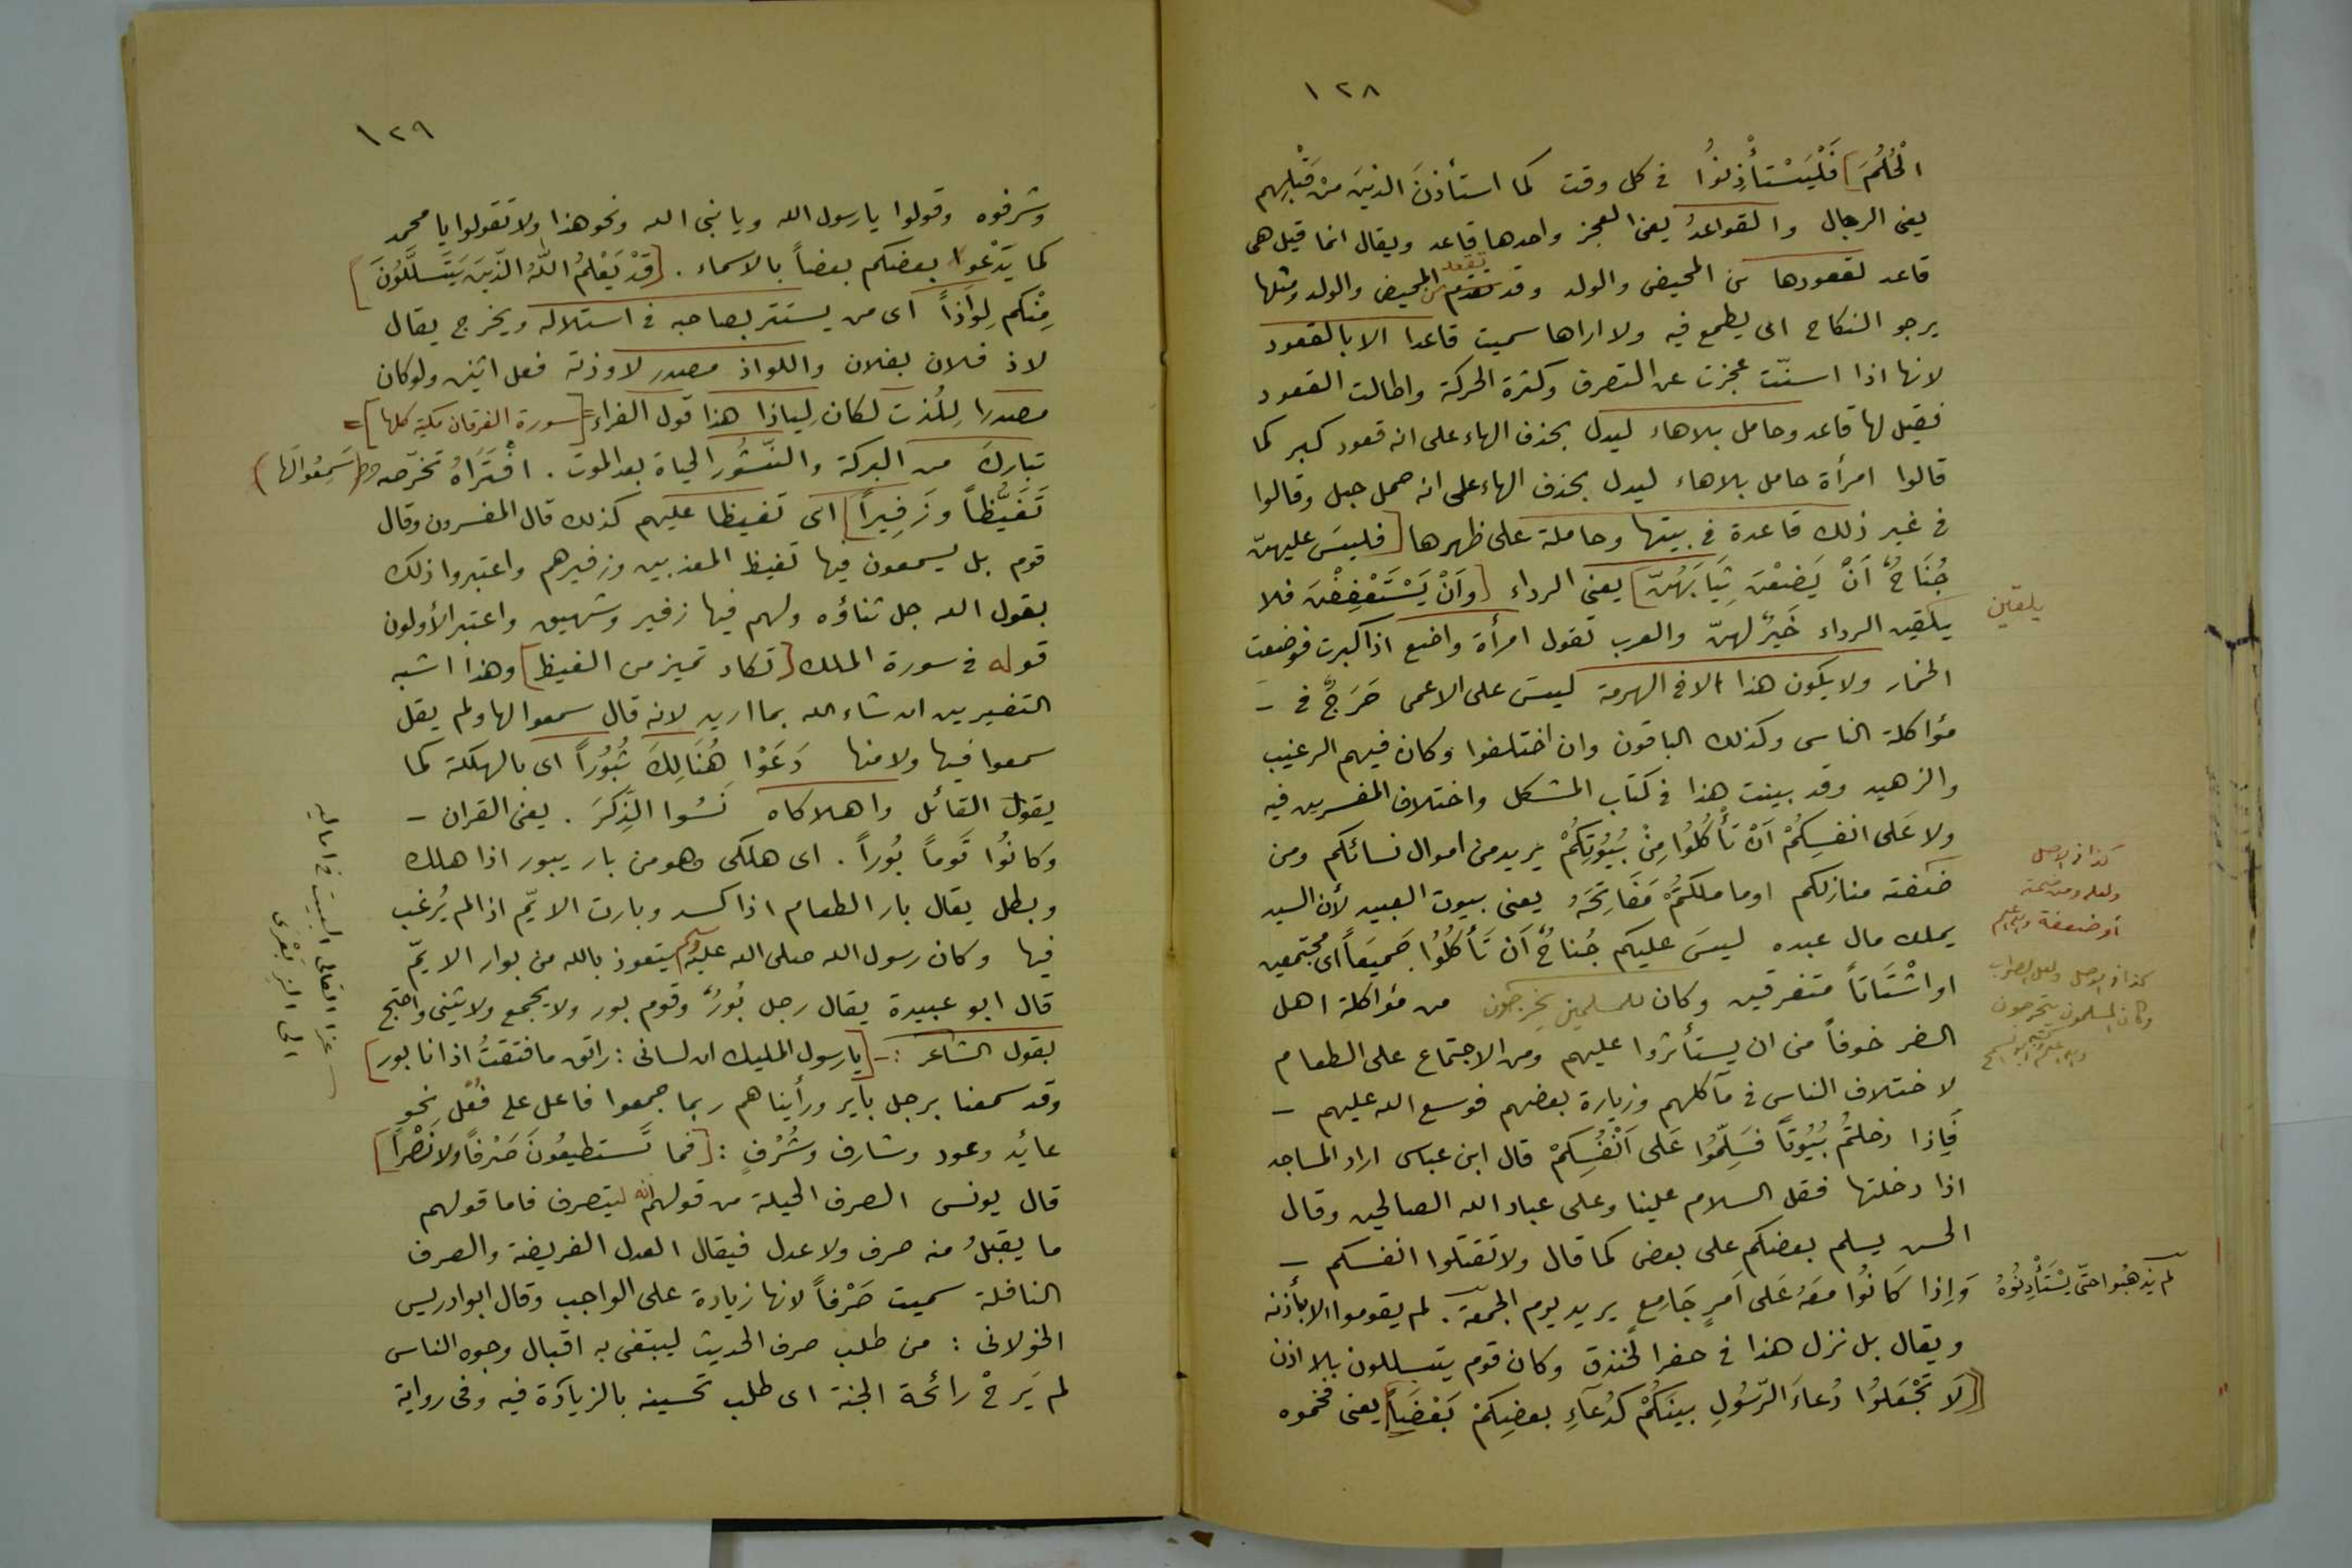 ١٢٨
الْحُلُمَ] فَلْيَسْتأْذِنُوا في كل وقت كما استأذنَ الذينَ منْ قَبْلِهِم
يعنى الرجال والقواعدُ يعنى العجز واحدها قاعد ويقال انما قيل هى
قاعد لقعودها عن المحيض والولد وقد تقعد عن المحيض والولد ومثلها
يرجو النكاح اى يطمع فيه ولا اراها سميت قاعدا الا بالقعود
لانها اذا اسنّت عجزت عن التصرف وكثرة الحركة واطالت القعود
فقيل لها قاعد وحامل بلاهاء ليدل بحذف الهاء على انه قعود كبر كما
قالوا امرأة حامل بلاهاء ليدل بحذف الهاء على انه حمل حبل وقالوا
في غير ذلك قاعدة في بيتها وحاملة على ظهرها [فليسَ عليهنّ
جُنَاحٌ اَنْ يَضَعْنَ ثِيَابَهُنّ] يعنى الرداء [وَاَنْ يَسْتَعْفِفْنَ فلا
يلقين الرداء خَيرٌ لهنّ والعرب تقول امرأة واضع اذا كبرت فوضعت
يلقين
الخمار ولا يكون هذا الا في الهرمة ليسَ على الاعمى حَرَجٌ في -
مؤاكلة الناس وكذلك الباقون وان اختلفوا وكان فيهم الرغيب
والزهيد وقد بينت هذا في كتاب المشكل واختلاف المفسرين فيه
ولا عَلى انفسِكُمْ اَنْ تَأْكُلُوا مِنْ بُيُوتِكُمْ يريد من اموال نسائكم ومن
ضمته منازلكم اوما ملكتُمْ مَفَاتِحَهُ يعنى بيوت العبيد لأن السيد
كذا في الاصل
يملك مال عبده ليسَ عليكم جُناحٌ اَن تَأْكُلُوُا جَميعَاً اى مجتمعين
او اشْتَاتاً متفرقين وكان للمسلمين يخرجون من مؤاكلة اهل
كذا في الاصل ولعل الصواب
وكان المسلمون يتحرجون
الضر خوفاً من ان يستأثروا عليهم ومن الاجتماع على الطعام
لاختلاف الناس في مآكلهم وزيارة بعضهم فوسع الله عليهم -
فَإِذا دخلتُم بُيُوتاً فسَلِّمُوا عَلى اَنْفُسِكُمْ قال ابن عباس اراد المساجد
اذا دخلتها فقل السلام علينا وعلى عباد الله الصالحين وقال
الحسن يسلم بعضكم على بعض كما قال ولا تقتلوا انفسكم -
وَاِذا كَانُوا مَعَهُ عَلى اَمرٍ جَامِعٍ يريد يوم الجمعة. لم يقوموا الا بأذنه
لم يَذهبُوا حتّى يَسْتَأْذِنُوهُ
ويقال بل نزل هذا في حفر الخندق وكان قوم يتسللون بلا اذن
[لَا تَجْعَلوُا دُعاءَ الرّسُولِ بينَكُمْ كدُعَاءِ بعضِكمْ بَعْضَاً] يعنى فخموه
١٢٩
وشرفوه وقولوا يا رسول الله ويا نبى الله ونحو هذا ولا تقولوا يا محمد
كما يَدْعوا بعضكم بعضاً بالاسماء. [قَدْ يَعْلمُ اللّٰهُ الّذينَ يَتَسلّلُونَ]
مِنْكم لِوَاذاً اى من يستتر بصاحبه في استلاله ويخرج يقال
لاذ فلان بفلان واللواذ مصدر لاوذت فعل اثنين ولو كان
مصدرا لِلُذت لكان لِياذا هذا قول الفراء = [سورة الفرقان مكية كلها] =
تباركَ من البركة والنّشُور الحياة بعد الموت. افْتَرَاهُ تخرّصه (سَمِعُوا لَها)
تَغَيُّظاً وزَفِيراً] اى تغيظا عليهم كذلك قال المفسرون وقال
قوم بل يسمعون فيها تغيظ المعذبين وزفيرهم واعتبروا ذلك
بقول الله جل ثناؤه ولهم فيها زفير وشهيق واعتبر الأولون
قوله في سورة الملك [تكاد تميز من الغيظ] وهذا اشبه
التفسيرين ان شاء الله بما اريد لانه قال سمعوا لها ولم يقل
سمعوا فيها ولا منها دَعَوْا هُنَالِكَ ثُبُوُراً اى بالهلكة كما
يقول القائل واهلاكاه نَسُوا الذِّكرَ. يعنى القران -
وَكانوُا قَوماً بُوراً. اى هلكى وهو من بار يبور اذا هلك
وبطل يقال بار الطعام اذا كسد وبارت الايّم اذا لم يُرغب
فيها وكان رسول الله صلى الله عليه وسلم يتعوذ بالله من بوار الايمّ
قال ابو عبيدة يقال رجل بُورٌ وقوم بور ولا يجمع ولا يثنى واحتج
بقول الشاعر :- [يا رسول المليك ان لسانى : راتق ما فتقتُ اذ انا بور]
عزا القالى البيت في اماليه
الى ابن الزبعرى
وقد سمعنا برجل باير ورأيناهم ربما جمعوا فاعل على فُعْل نحو
عائِد وعود وشارف وشُرْفٍ : [فما تَستطيعُونَ صَرْفاً ولا نَصْراً]
قال يونس الصرف الحيلة من قولهم انه ليتصرف فاما قولهم
ما يقبلُ منه صرف ولا عدل فيقال العدل الفريضة والصرف
النافلة سميت صَرْفاً لانها زيادة على الواجب وقال ابو ادريس
الخولانى : من طلب صرف الحديث ليبتغى به اقبال وجوه الناس
لم يَرحْ رائحة الجنة اى طلب تحسينه بالزيادة فيه وفى رواية